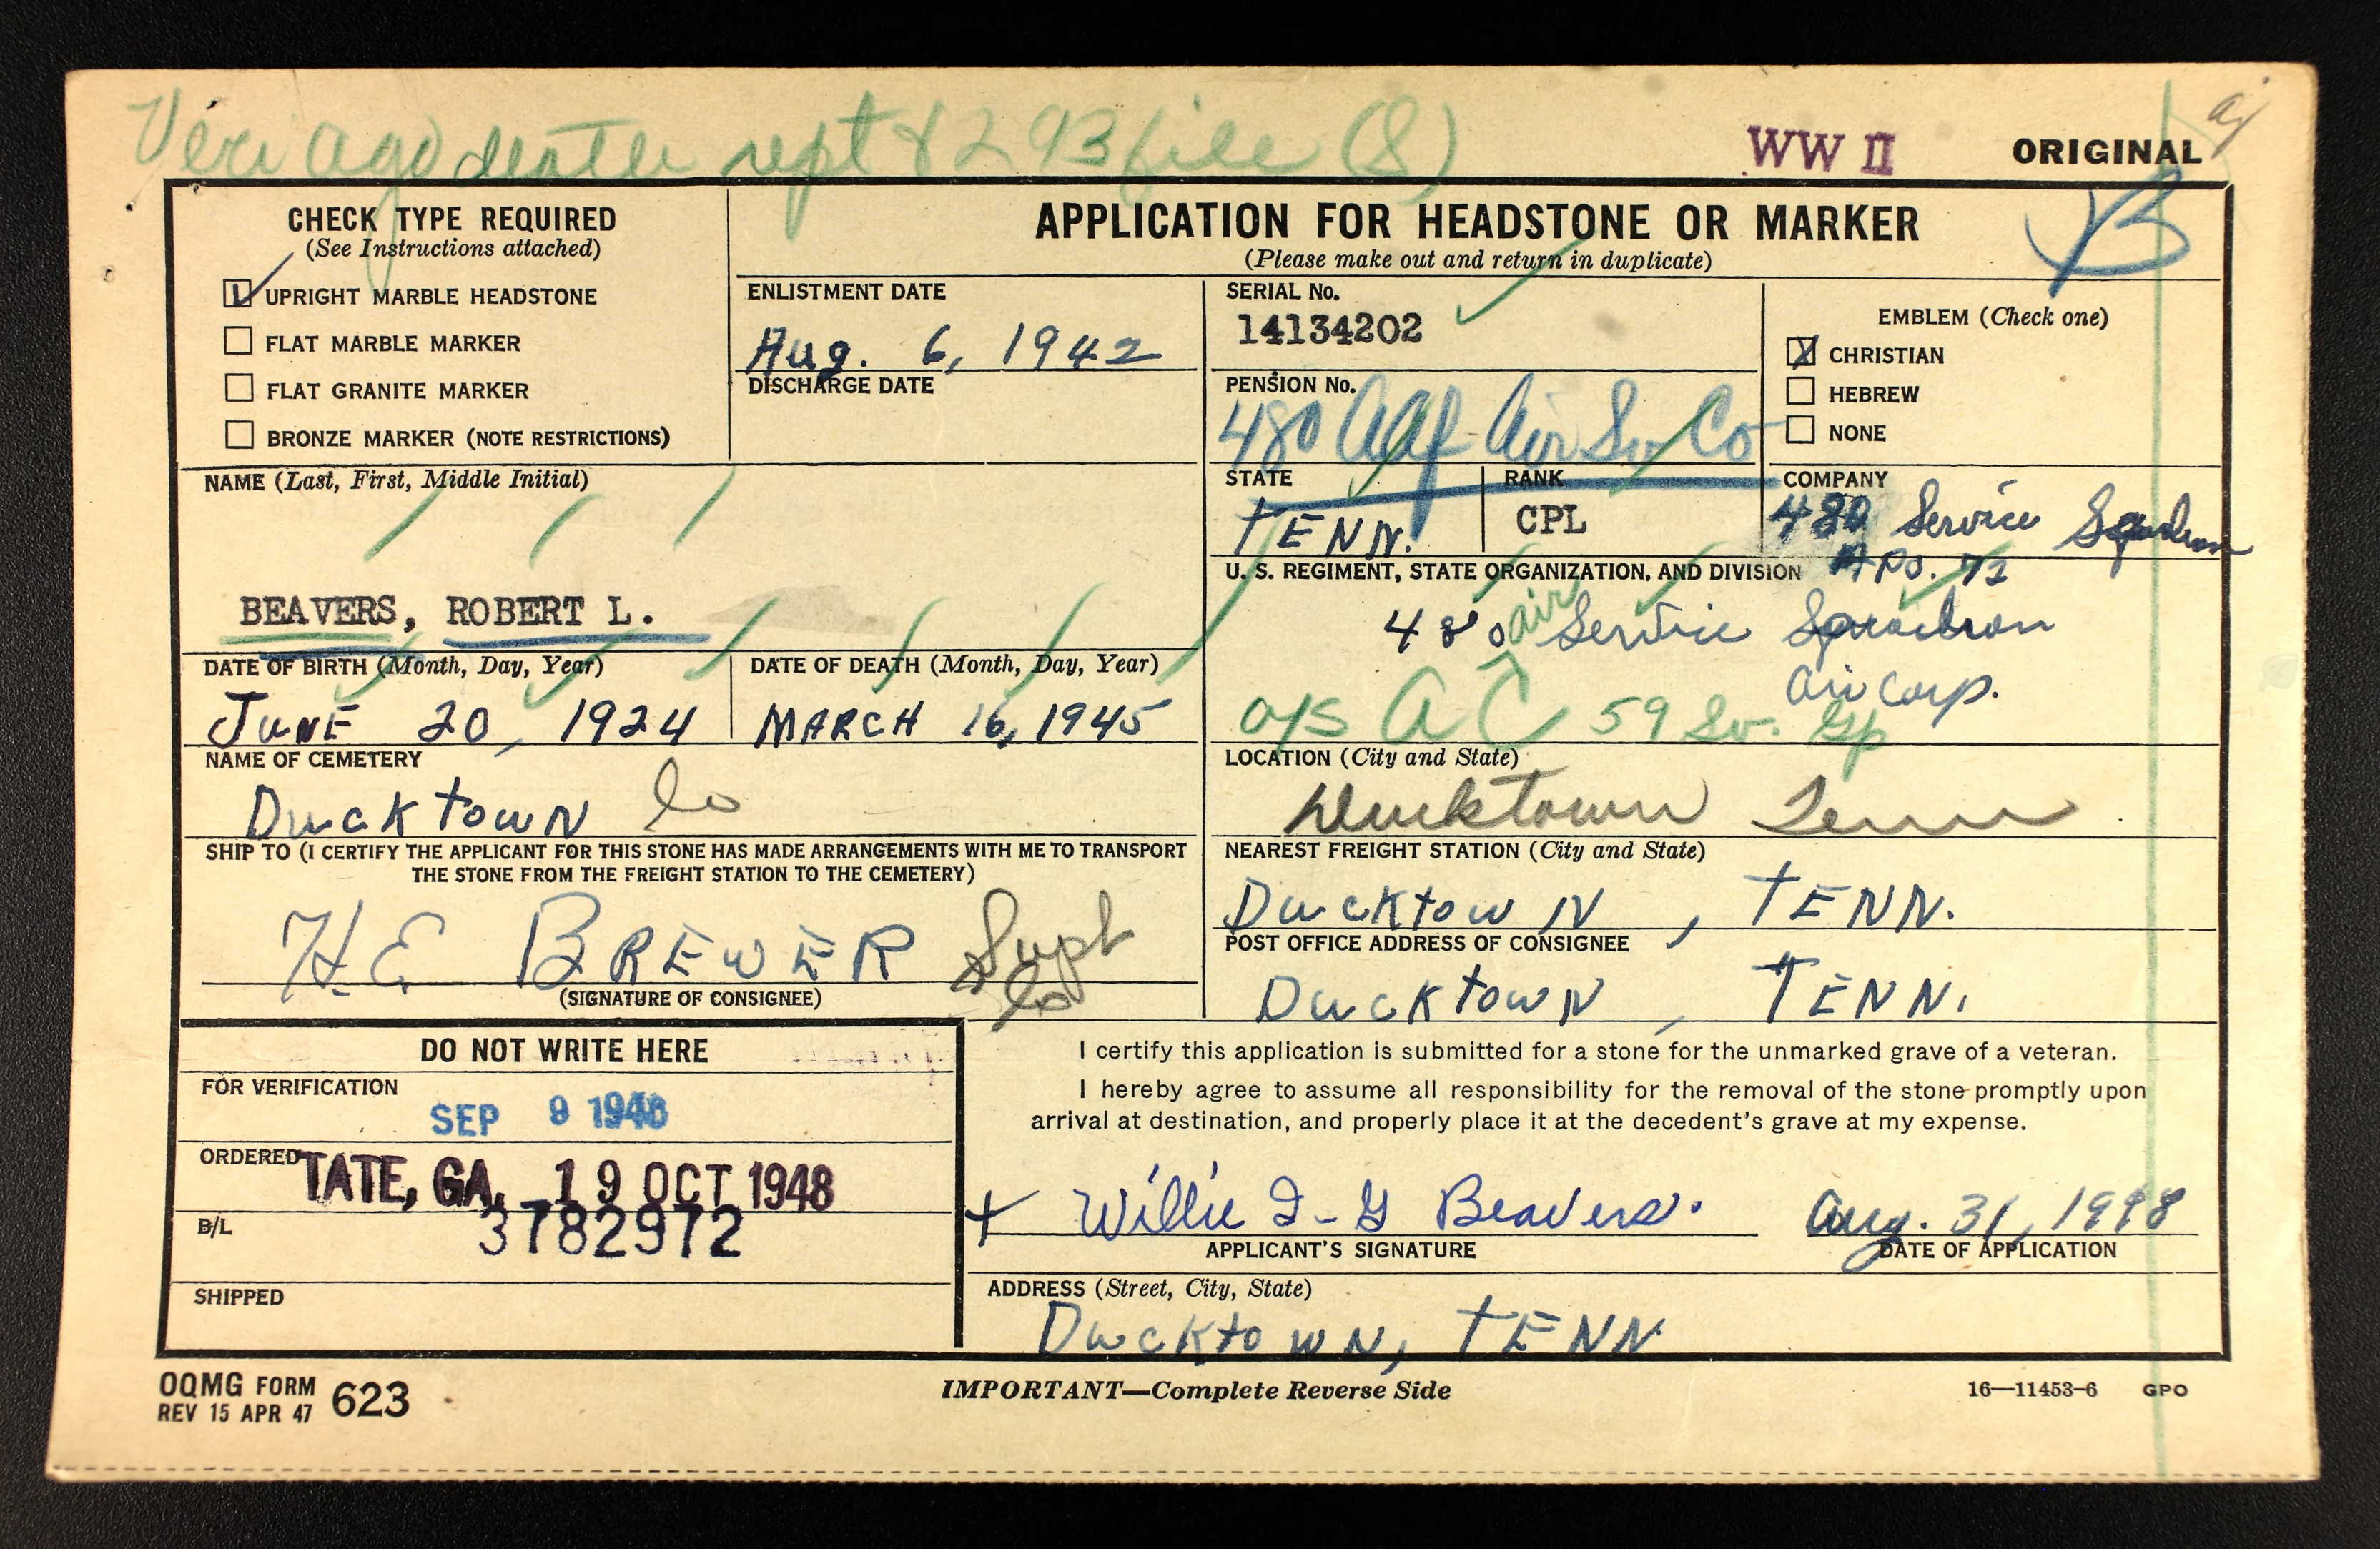 Veri ago death rept & 293 file (8)
WW II
ORIGINAL
CHECK TYPE REQUIRED
(See Instructions attached)
UPRIGHT MARBLE HEADSTONE
FLAT MARBLE MARKER
FLAT GRANITE MARKER
BRONZE MARKER (NOTE RESTRICTIONS)
APPLICATION FOR HEADSTONE OR MARKER
(Please make out and return in duplicate)
B
ENLISTMENT DATE
Aug. 6, 1942
DISCHARGE DATE
SERIAL No.
14134202
PENSION No.
480 AAF Air Sv Co
EMBLEM (Check one)
X CHRISTIAN
HEBREW
NONE
NAME (Last, First, Middle Initial)
BEAVERS, ROBERT L.
STATE
TENN.
RANK
CPL
COMPANY
480 Service Squadron
APO. 72
U. S. REGIMENT, STATE ORGANIZATION, AND DIVISION
480 air Service Squadron
Air Corp.
o/s AC 59 Sv. Gp
DATE OF BIRTH (Month, Day, Year)
JUNE 20, 1924
DATE OF DEATH (Month, Day, Year)
MARCH 16, 1945
NAME OF CEMETERY
Ducktown Co
LOCATION (City and State)
Ducktown Tenn
SHIP TO (I CERTIFY THE APPLICANT FOR THIS STONE HAS MADE ARRANGEMENTS WITH ME TO TRANSPORT
THE STONE FROM THE FREIGHT STATION TO THE CEMETERY)
H.E. BREWER Supt
Co
(SIGNATURE OF CONSIGNEE)
NEAREST FREIGHT STATION (City and State)
DucktowN, TENN.
POST OFFICE ADDRESS OF CONSIGNEE
DucktowN, TENN.
DO NOT WRITE HERE
FOR VERIFICATION
SEP 9 1948
ORDERED TATE, GA. 19 OCT 1948
B/L 3782972
SHIPPED
I certify this application is submitted for a stone for the unmarked grave of a veteran.
I hereby agree to assume all responsibility for the removal of the stone promptly upon
arrival at destination, and properly place it at the decedent's grave at my expense.
Willie I-G Beavers.
APPLICANT'S SIGNATURE
Aug. 31, 1948
DATE OF APPLICATION
ADDRESS (Street, City, State)
DucktowN, TENN
OQMG FORM 623
REV 15 APR 47
IMPORTANT—Complete Reverse Side
16—11453-6 GPO